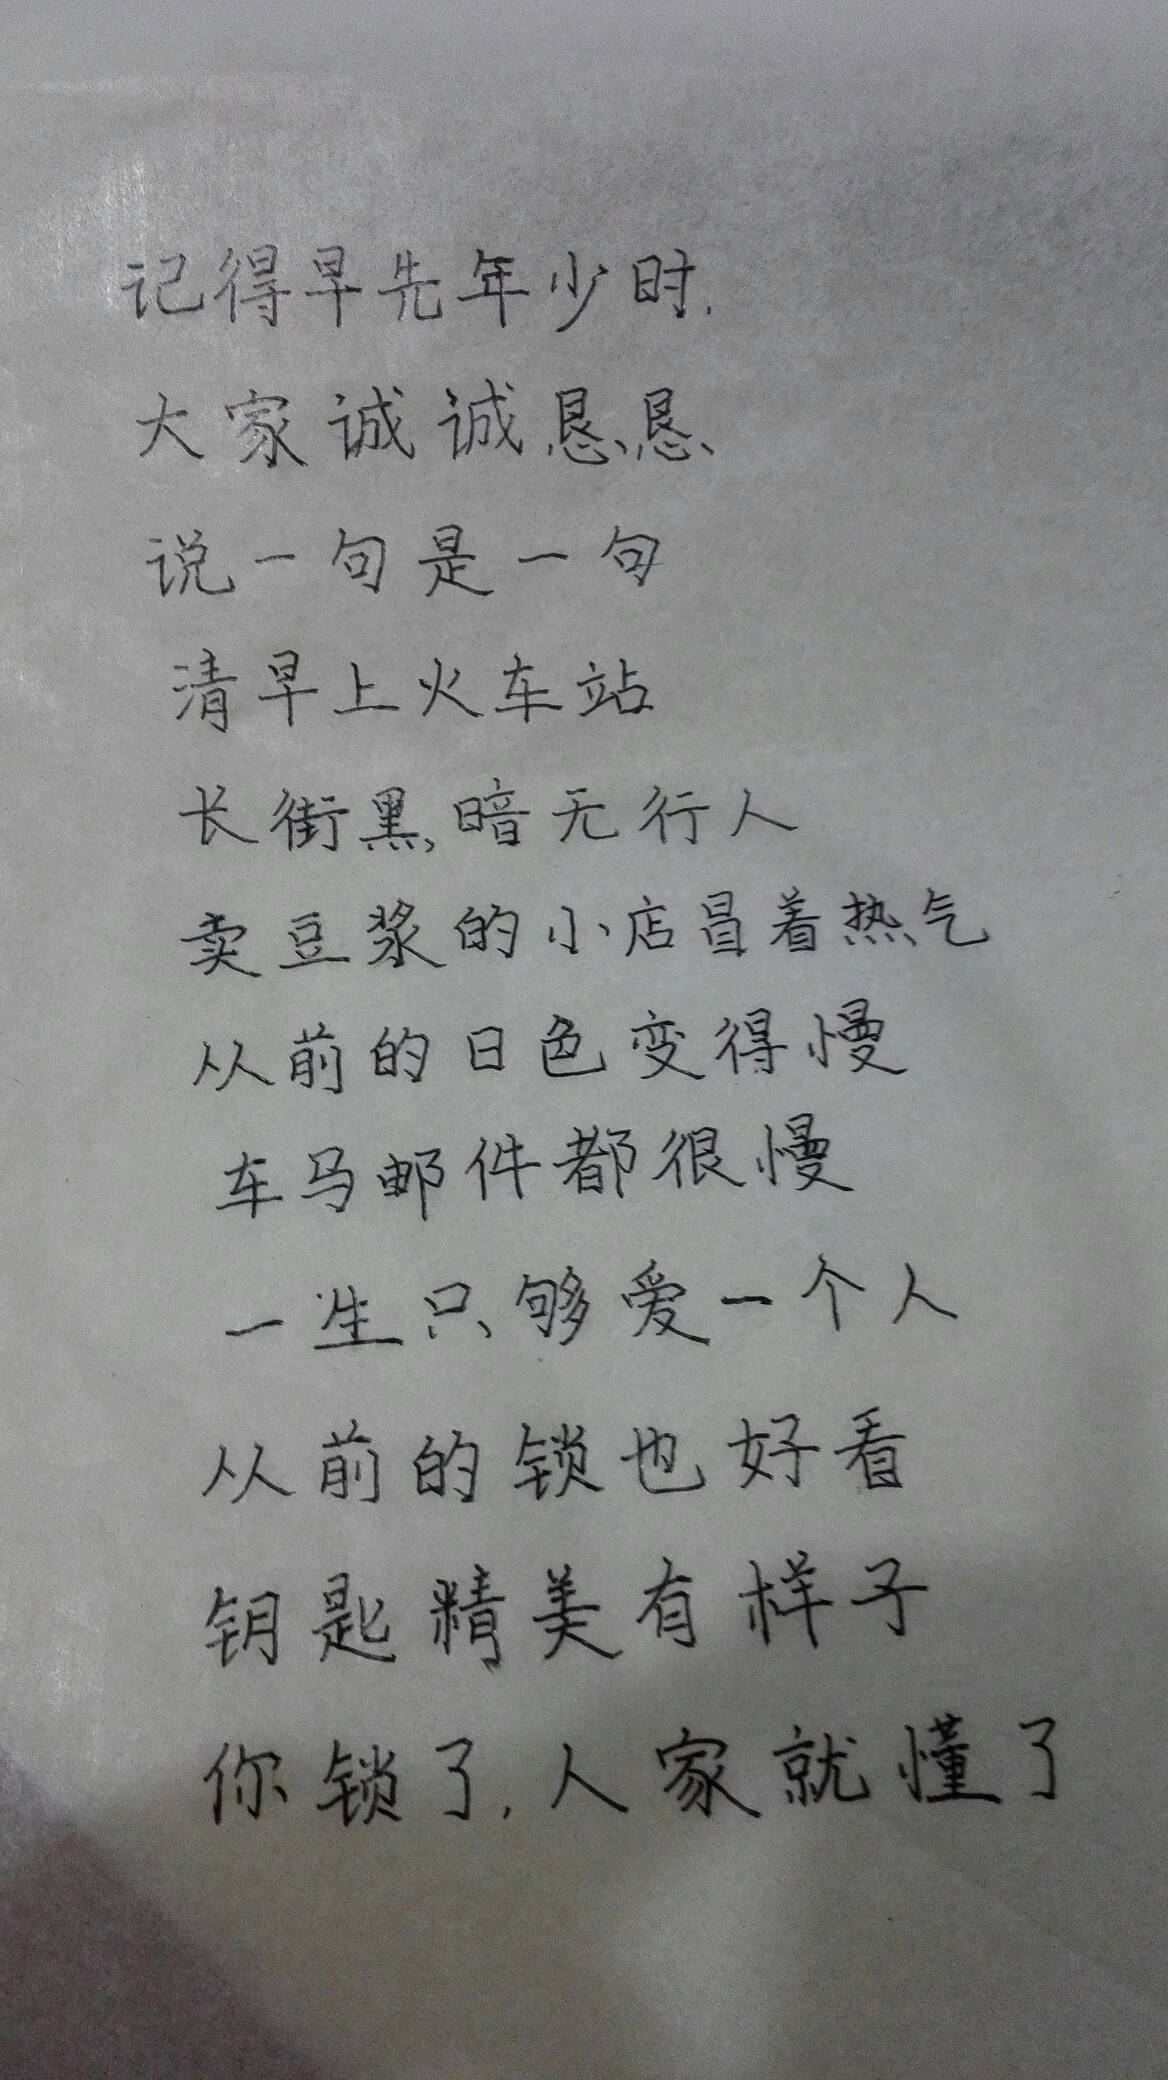 记得早先年少时.
大家诚诚恳恳
说一句是一句
清早上火车站
长街黑暗无行人
卖豆浆的小店冒着热气
从前的日色变得慢
车马邮件都很慢
一生只够爱一个人
从前的锁也好看
钥匙精美有样子
你锁了.人家就懂了